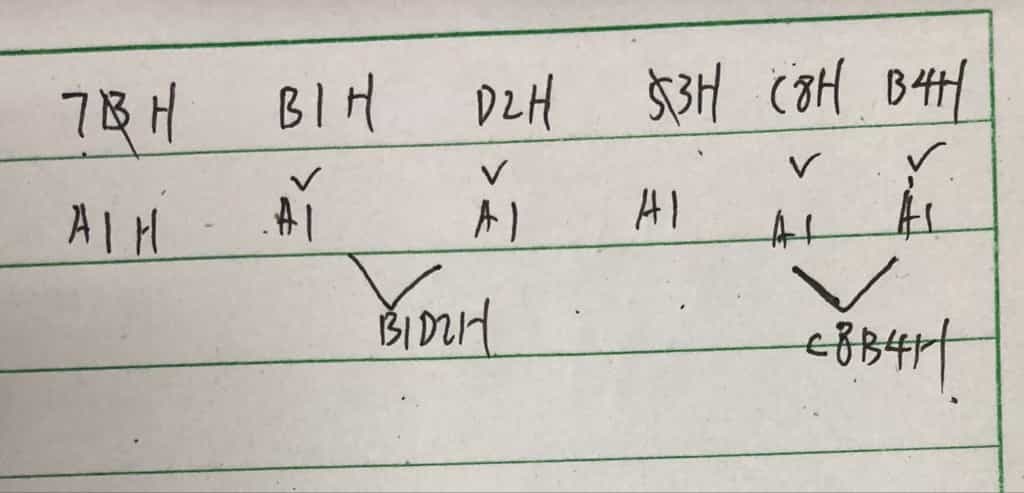 7B H B1H D2H 53H C8H B4H
A1H A1 A1 A1 A1 A1
B1D2H
C8B4H